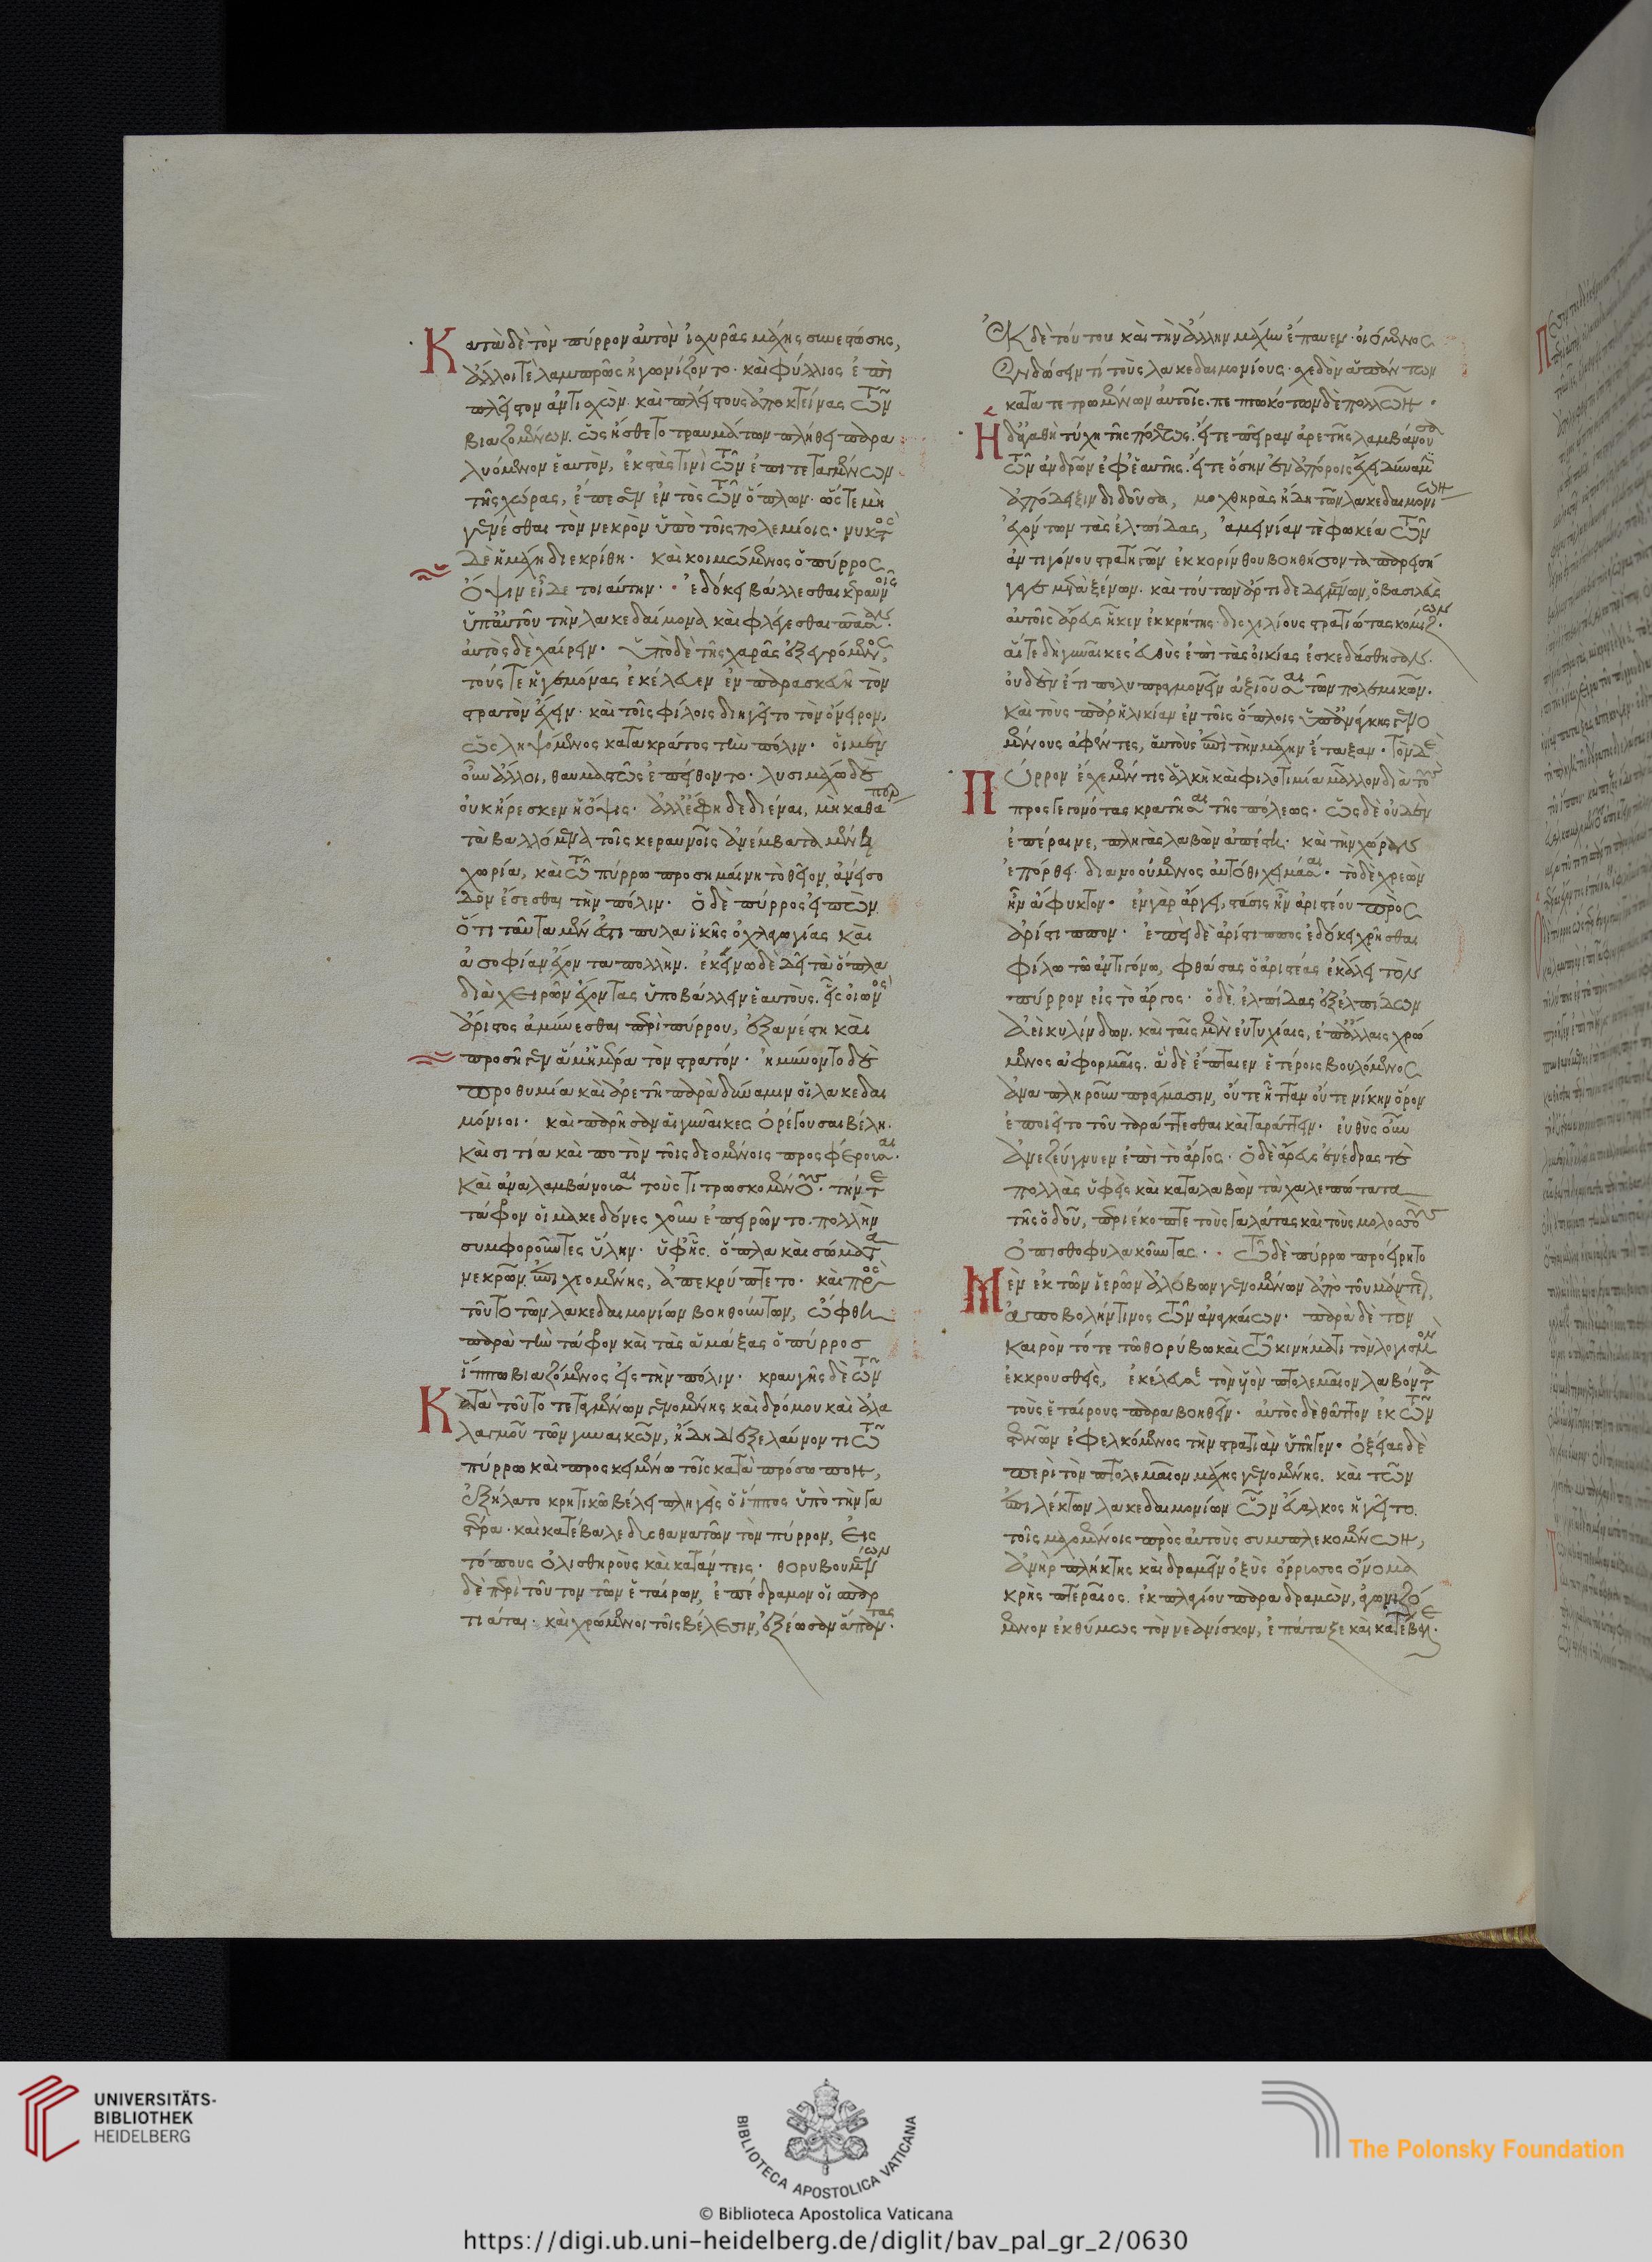 Κατὰ δὲ τὸν πύρρον αὐτὸν ἰσχυρᾶς μάχης συνεστώσης,
ἄλλοι τὲ λαμπρῶς ἠγωνίζοντο· καὶ φύλλιος ἐπὶ
πλεῖστον ἀντισχὼν· καὶ πλείστους ἀποκτείνας τῶν
βιαζομένων. ὡς ἤσθετο τραυμάτων πλήθει παρα
λυόμενον ἑαυτὸν, ἐκστὰς τινὶ τῶν ἐπιτεταγμένων
τῆς χώρας, ἔπεσεν ἐντὸς τῶν ὅπλων· ὥστε μὴ
γενέσθαι τὸν νεκρὸν ὑπὸ τοῖς πολεμίοις· νυκτὸς
δὲ ἡ μάχη διεκρίθη· καὶ κοιμώμενος ὁ πύρρος
ὄψιν εἶδε τοιαύτην· ἐδόκει βάλλεσθαι κεραυνοῖς
ὑπ' αὐτοῦ τὴν λακεδαίμονα καὶ φλέγεσθαι πᾶσαν.
αὐτὸς δὲ χαίρειν· ὑπὸ δὲ τῆς χαρᾶς ἐξεγρόμενος,
τούς τε ἡγεμόνας ἐκέλευεν ἐν παρασκευῆ τὸν
στρατὸν ἔχειν· καὶ τοῖς φίλοις διηγεῖτο τὸν ὄνειρον,
ὡς ληψόμενος κατακράτος τὴν πόλιν· οἱ μὲν
οὖν ἄλλοι, θαυμαστῶς ἐπείθοντο· λυσιμάχω δὲ
οὐκ ἤρεσκεν ἡ ὄψις· ἀλλ' ἔφη δεδιέναι, μὴ καθάπερ
τὰ βαλλόμενα τοῖς κεραυνοῖς ἀνέμβατα μένει
χωρία, καὶ τῶ πύρρω προσημαίνη τὸ θεῖον, ἀνείσο
δον ἔσεσθαι τὴν πόλιν· ὁ δὲ πύρρος εἰπὼν
ὅτι ταῦτα μέν ἐστι πυλαϊκῆς ὀχλαγωγίας καὶ
ἀσοφίαν ἔχοντα πολλὴν. ἐκεῖνο δὲ δεῖ τὰ ὅπλα
διὰ χειρῶν ἔχοντας ὑποβάλλειν ἑαυτοὺς. εἷς οἰωνὸς
ἄριστος ἀμύνεσθαι περὶ πύρρου, ἐξανέστη καὶ
προσῆγεν ἅμ' ἡμέρα τὸν στρατόν· ἠμύνοντο δὲ
προθυμία καὶ ἀρετῆ παρὰ δύναμιν οἱ λακεδαι
μόνιοι· καὶ παρῆσαν αἱ γυναῖκες ὀρέγουσαι βέλη.
καὶ σιτία καὶ ποτὸν τοῖς δεομένοις προσφέρουσαι.
καὶ ἀναλαμβάνουσαι τοὺς τιτρωσκομένους· τήν τε
τάφρον οἱ μακεδόνες χοῦν ἐπειρῶντο. πολλὴν
συμφοροῦντες ὕλην· ὑφ' ἧς. ὅπλα καὶ σώματα
νεκρῶν ἐπιχεομένης, ἀπεκρύπτετο· καὶ πρὸς
τοῦτο τῶν λακεδαιμονίων βοηθούντων, ὤφθη
παρὰ τὴν τάφρον καὶ τὰς ἁμάξας ὁ πύρρος
ἵππω βιαζόμενος εἰς τὴν πόλιν· κραυγῆς δὲ τῶν
Κατὰ τοῦτο τεταγμένων γενομένης καὶ δρόμου καὶ ὀλο
λυγμοῦ τῶν γυναικῶν, ἤδη διεξελαύνοντι τῶ
πύρρω καὶ προσκειμένω τοῖς κατὰ πρόσωπον,
ἐξήλατο κρητικῶ βέλει πληγεὶς ὁ ἵππος ὑπὸ τὴν γα
στέρα· καὶ κατέβαλε δυσθανατῶν τὸν πύρρον, εἰς
τόπους ὀλισθηροὺς καὶ κατάντεις· θορυβουμένων
δὲ περὶ τοῦτον τῶν ἑταίρων, ἐπέδραμον οἱ σπαρ
τιάται· καὶ χρώμενοι τοῖς βέλεσιν, ἐξέωσαν ἅπαντας.
Ἐκ δὲ τούτου καὶ τὴν ἄλλην μάχην ἔπαυεν· οἰόμενος
ἐνδώσειν τὶ τοὺς λακεδαιμονίους· σχεδὸν ἁπάντων
κατατετρωμένων αὐτοῖς· πεπτωκότων δὲ πολλῶν·
Ἡ δ' ἀγαθὴ τύχη τῆς πόλεως. εἴτε πεῖραν ἀρετῆς λαμβάνουσα
τῶν ἀνδρῶν ἐφ' ἑαυτῆς. εἴτε ὅσην ἐν ἀπόροις ἔχει δύναμιν
ἀπόδειξιν διδοῦσα, μοχθηρὰς ἤδη τῶν λακεδαιμονίων
ἐχόντων τὰς ἐλπίδας, ἀμεινίαν τὲ φωκέα τῶν
ἀντιγόνου στρατηγῶν ἐκ κορίνθου βοηθήσοντα παρεισή
γαγε μετὰ ξένων· καὶ τοῦτων ἄρτι δεδεγμένων, ὁ βασιλεὺς
αὐτοῖς ἀρεὺς ἧκεν ἐκ κρήτης· δισχιλίους στρατιώτας κομίζων·
αἵ τε δὴ γυναῖκες εὐθὺς ἐπὶ τὰς οἰκίας ἐσκεδάσθησαν·
οὐδὲν ἔτι πολυπραγμονεῖν ἀξιοῦσαι τῶν πολεμικῶν.
καὶ τοὺς παρ' ἡλικίαν ἐν τοῖς ὅπλοις ὑπ' ἀνάγκης γενο
μένους ἀφέντες, αὑτοὺς ἐπὶ τὴν μάχην ἔταξαν· τὸν δὲ
Πύρρον ἔσχε μέν τις ἀλκὴ καὶ φιλοτιμία μᾶλλον διὰ τοὺς
προσγεγονότας κρατῆσαι τῆς πόλεως· ὡς δὲ οὐδὲν
ἐπέραινε, πληγὰς λαβὼν ἀπέστη· καὶ τὴν χώραν
ἐπόρθει διανοούμενος αὐτόθι χειμάσαι· τὸ δὲ χρεὼν
ἦν ἄφυκτον· ἐν γὰρ ἄργει, στάσις ἦν ἀριστέου πρὸς
ἀρίστιππον· ἐπεὶ δὲ ἀρίστιππος ἐδόκει χρῆσθαι
φίλω τῶ ἀντιγόνω, φθάσας ὁ ἀριστέας ἐκάλει τὸν
πύρρον εἰς τὸ ἄργος· ὁ δὲ ἐλπίδας ἐξ ἐλπίδων
ἀεὶ κυλίνδων. καὶ ταῖς μὲν εὐτυχίαις, ἐπ' ἄλλαις χρώ
μενος ἀφορμαῖς. ἃ δὲ ἔπταιεν ἑτέροις βουλόμενος
ἀναπληροῦν πράγμασιν, οὔτε ἧτταν οὔτε νίκην ὅρον
ἐποιεῖτο τοῦ ταράττεσθαι καὶ ταράττειν· εὐθὺς οὖν
ἀνεζεύγνυεν ἐπὶ τὸ ἄργος· ὁ δὲ ἀρεὺς ἐνέδρας τε
πολλὰς ὑφεὶς καὶ καταλαβὼν τὰ χαλεπώτατα
τῆς ὁδοῦ, περιέκοπτε τοὺς γαλάτας καὶ τοὺς μολοσσοὺς
ὀπισθοφυλακοῦντας· τῶ δὲ πύρρω προείρητο
Μὲν ἐκ τῶν ἱερῶν ἀλόβων γενομένων ἀπὸ τοῦ μάντεως,
ἀποβολήν τινος τῶν ἀναγκαίων· παρὰ δὲ τὸν
καιρὸν τότε τῶ θορύβω καὶ τῶ κινήματι τὸν λογισμὸν
ἐκκρουσθεὶς, ἐκέλευσε τὸν υἱὸν πτολεμαῖον λαβόντα
τοὺς ἑταίρους παραβοηθεῖν· αὐτὸς δὲ θᾶττον ἐκ τῶν
στενῶν ἐφελκόμενος τὴν στρατιὰν ὑπῆγεν· ὀξείας δὲ
περὶ τὸν πτολεμαῖον μάχης γενομένης. καὶ τῶν
ἐπιλέκτων λακεδαιμονίων ὧν εὔαλκος ἡγεῖτο
τοῖς μαχομένοις πρὸς αὐτοὺς συμπλεκομένων,
ἀνὴρ πλήκτης καὶ δραμεῖν ὀξὺς ὄρρισσος ὄνομα
κρὴς πτεραῖος. ἐκ πλαγίου παραδραμὼν, ἀγωνιζό
μενον ἐκθύμως τὸν νεανίσκον, ἐπάταξε καὶ κατέβαλε.
UNIVERSITÄTS-
BIBLIOTHEK
HEIDELBERG
BIBLIOTECA APOSTOLICA VATICANA
The Polonsky Foundation
© Biblioteca Apostolica Vaticana
https://digi.ub.uni-heidelberg.de/diglit/bav_pal_gr_2/0630